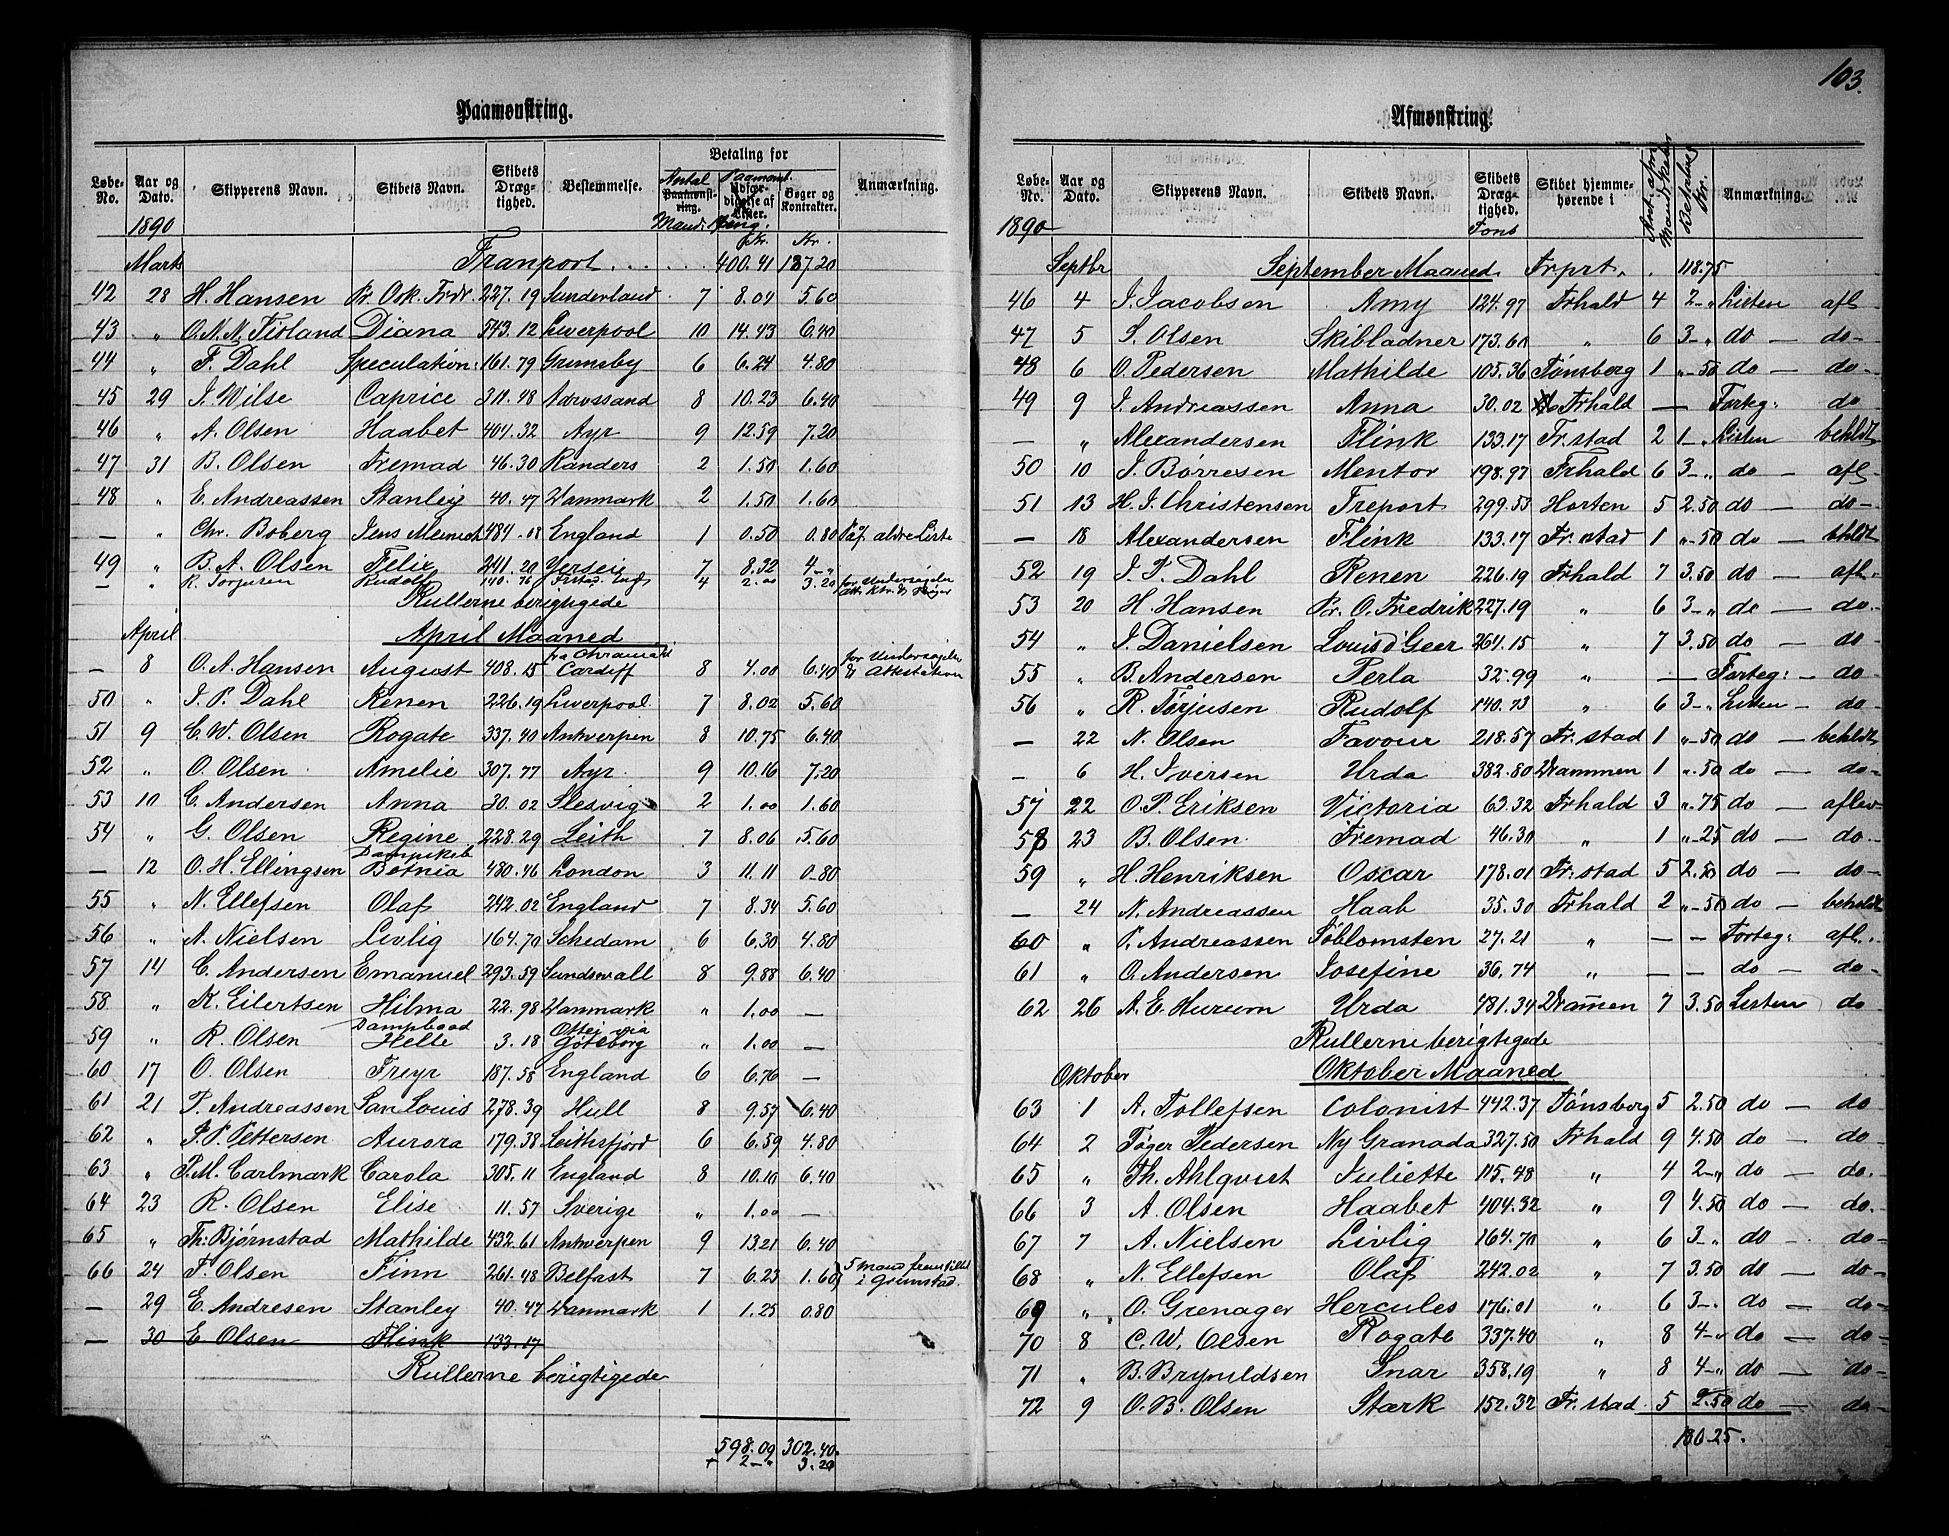 103.
Paamønstring.
Løbe-No. Aar og Dato. Skipperens Navn. Skibets Navn. Skibets Dræg-tighed. Bestemmelse. Antal Paamønst-ring. Mand. Betaling for Paamønst. Udfær-digelse af Lister. Bøger og Kontrakter. Anmærkning.
1890 Kr. Kr.
Marts Tranport . . . . . . 400.41 187.20
42 28 H. Hansen Pr. Osk. Frdr. 227.19 Sunderland 7 8.04 5.60
43 " O.N.N. Fisland Diana 543.12 Liverpool 10 14.43 6.40
44 " F. Dahl Speculation 161.79 Grimsby 6 6.24 4.80
45 29 J. Wilse Caprice 311.48 8 10.23 6.40
46 " A. Olsen Haabet 404.32 Ayr 9 12.59 7.20
47 31 B. Olsen Fremad 46.30 Randers 2 1.50 1.60
48 " E. Andreassen Stanley 40.47 Danmark 2 1.50 1.60
— " Chr. Boberg Jens Meinich 484.08 England 1 0.50 0.80 Paaf. aldre Liste
49 " B. A. Olsen Felix 241.20 Yerseie 7 8.32 4-"
— " R. Torjusen Rudolf 140.76 4 2.00 3.20 for Undersøgelse
Rullerne berigtigede
April April Maaned
— 8 O. A. Hansen August 408.15 Cardiff 8 4.00 6.40 for Undersøgelse & Attestation
50 " J. P. Dahl Renen 226.19 Liverpool 7 8.02 5.60
51 9 C. W. Olsen Rogate 337.40 Antverpen 8 10.75 6.40
52 " O. Olsen Amelie 307.77 Ayr 9 10.16 7.20
53 10 C. Andersen Anna 30.02 Slesvig 2 1.00 1.60
54 " G. Olsen Regine 228.29 Leith 7 8.06 5.60
— 12 O. H. Ellingsen Dampskib Botnia 480.46 London 3 11.11 0.80
55 " N. Ellefsen Olaf 242.02 England 7 8.34 5.60
56 " A. Nielsen Livlig 164.70 Schedam 6 6.30 4.80
57 14 C. Andersen Emanuel 293.59 Sundswall 8 9.88 6.40
58 " K. Eilertsen Hilma 22.98 Danmark " 1.00 —
59 " R. Olsen Dampbaad Helte 3.18 Göteborg " 1.00 —
60 17 O. Olsen Freyr 187.58 England 6 6.76 —
61 21 P. Andreassen San Louis 278.39 Hull 8 9.57 6.40
62 " P. P. Pettersen Aurora 179.38 Leithsfjord 6 6.59 4.80
63 " P. M. Carlmark Carola 305.11 England 8 10.10 6.40
64 23 R. Olsen Elise 11.57 Sverige " 1.00 —
65 " Th. Bjørnstad Mathilde 432.61 Antverpen 9 13.21 6.40
66 24 F. Olsen Finn 261.48 Belfast 7 6.23 1.60 5 mand fremstillet i Grimstad.
— 29 E. Andresen Stanley 40.47 Danmark 1 1.25 0.80
— 30 E Olsen Flink 133.17
Rullerne berigtigede
598.09 302.40
+ 2-" 3.20
Afmønstring.
Løbe-No. Aar og Dato. Skipperens Navn. Skibets Navn. Skibets Dræg-tighed. Tons Skibet hjemme-hørende i Ant. afm. Mandskaber Betaling Kr. Anmærkning.
1890
Septbr September Maaned Trprt. . 118.75
46 4 J. Jacobsen Amy 124.97 Frhald 4 2-" Listen afl-
47 5 S. Olsen Skibladner 173.60 " 6 3-" do — do-
48 6 O. Pedersen Mathilde 105.36 Tønsberg 1 "-50 do — do-
49 9 J. Andreassen Anna 30.02 Frhald — Forteg: do
— " Alexandersen Flink 133.17 Fr.stad 2 1-" Listen beholdt
50 10 J. Børresen Mentor 198.97 Frhald 6 3-" do — afl-
51 13 H. J. Christensen Freport 299.53 Horten 5 2.50 do — do-
— 18 Alexandersen Flink 133.17 Fr.stad 1 "-50 do — behldt
52 19 J. P. Dahl Renen 226.19 Frhald 7 3.50 do — afl.
53 20 H. Hansen Pr. O. Fredrik 227.19 " 6 3-" do — do.
54 " J. Danielsen Louis d Geer 264.15 " 7 3.50 do — do
55 " B. Andersen Perla 32.99 " — Forteg: — do
56 " R. Torjusen Rudolf 140.73 " 6 3-" Listen — do
— 22 N. Olsen Favour 218.57 Fr.stad 1 "-50 do — beholdt
— 6 H. Iversen Urda 382.80 Drammen 1 "-50 do — do-
57 22 O. P. Eriksen Victoria 63.32 Frhald 3 ".75 do — aflev
58 23 B. Olsen Fremad 46.30 " 1 "-25 do — do-
59 " H. Henriksen Oscar 178.01 Fr.stad 5 2.50 do — do-
— 24 N. Andreassen Haab 35.30 Frhald 2 "-50 do — beholdt
60 " P. Andreassen Söblomsten 27.21 " — — Forteg: afl.
61 " O. Andersen Josefine 36.74 " — — do — do-
62 26 A. E. Hurum Urda 481.34 Dramen 7 3.50 Listen do
Rullerne berigtigede
Oktober Oktober Maaned
63 1 A. Tollefsen Colonist 442.37 Tønsberg 5 2.50 do — do
64 2 Tøger Pedersen Ny Granada 327.50 Frhald 9 4.50 do — do
65 " Th. Ahlqvist Juliette 115.48 " 4 2-" do — do.
66 3 A. Olsen Haabet 404.32 " 9 4.50 do — do.
67 7 A. Nielsen Livlig 164.70 " 6 3-" do — do-
68 " N. Ellefsen Olaf 242.02 " 7 3.50 do — do-
69 " O. Grenager Hercules 176.01 " 6 3-" do — do-
70 8 C. W. Olsen Rogate 337.40 " 8 4-" do — do-
71 " B. Brynildsen Snar 358.19 " 8 4-" do — do-
72 9 O. B. Olsen Stærk 152.32 Fr.stad 5 2.50 do — do-
180.25.